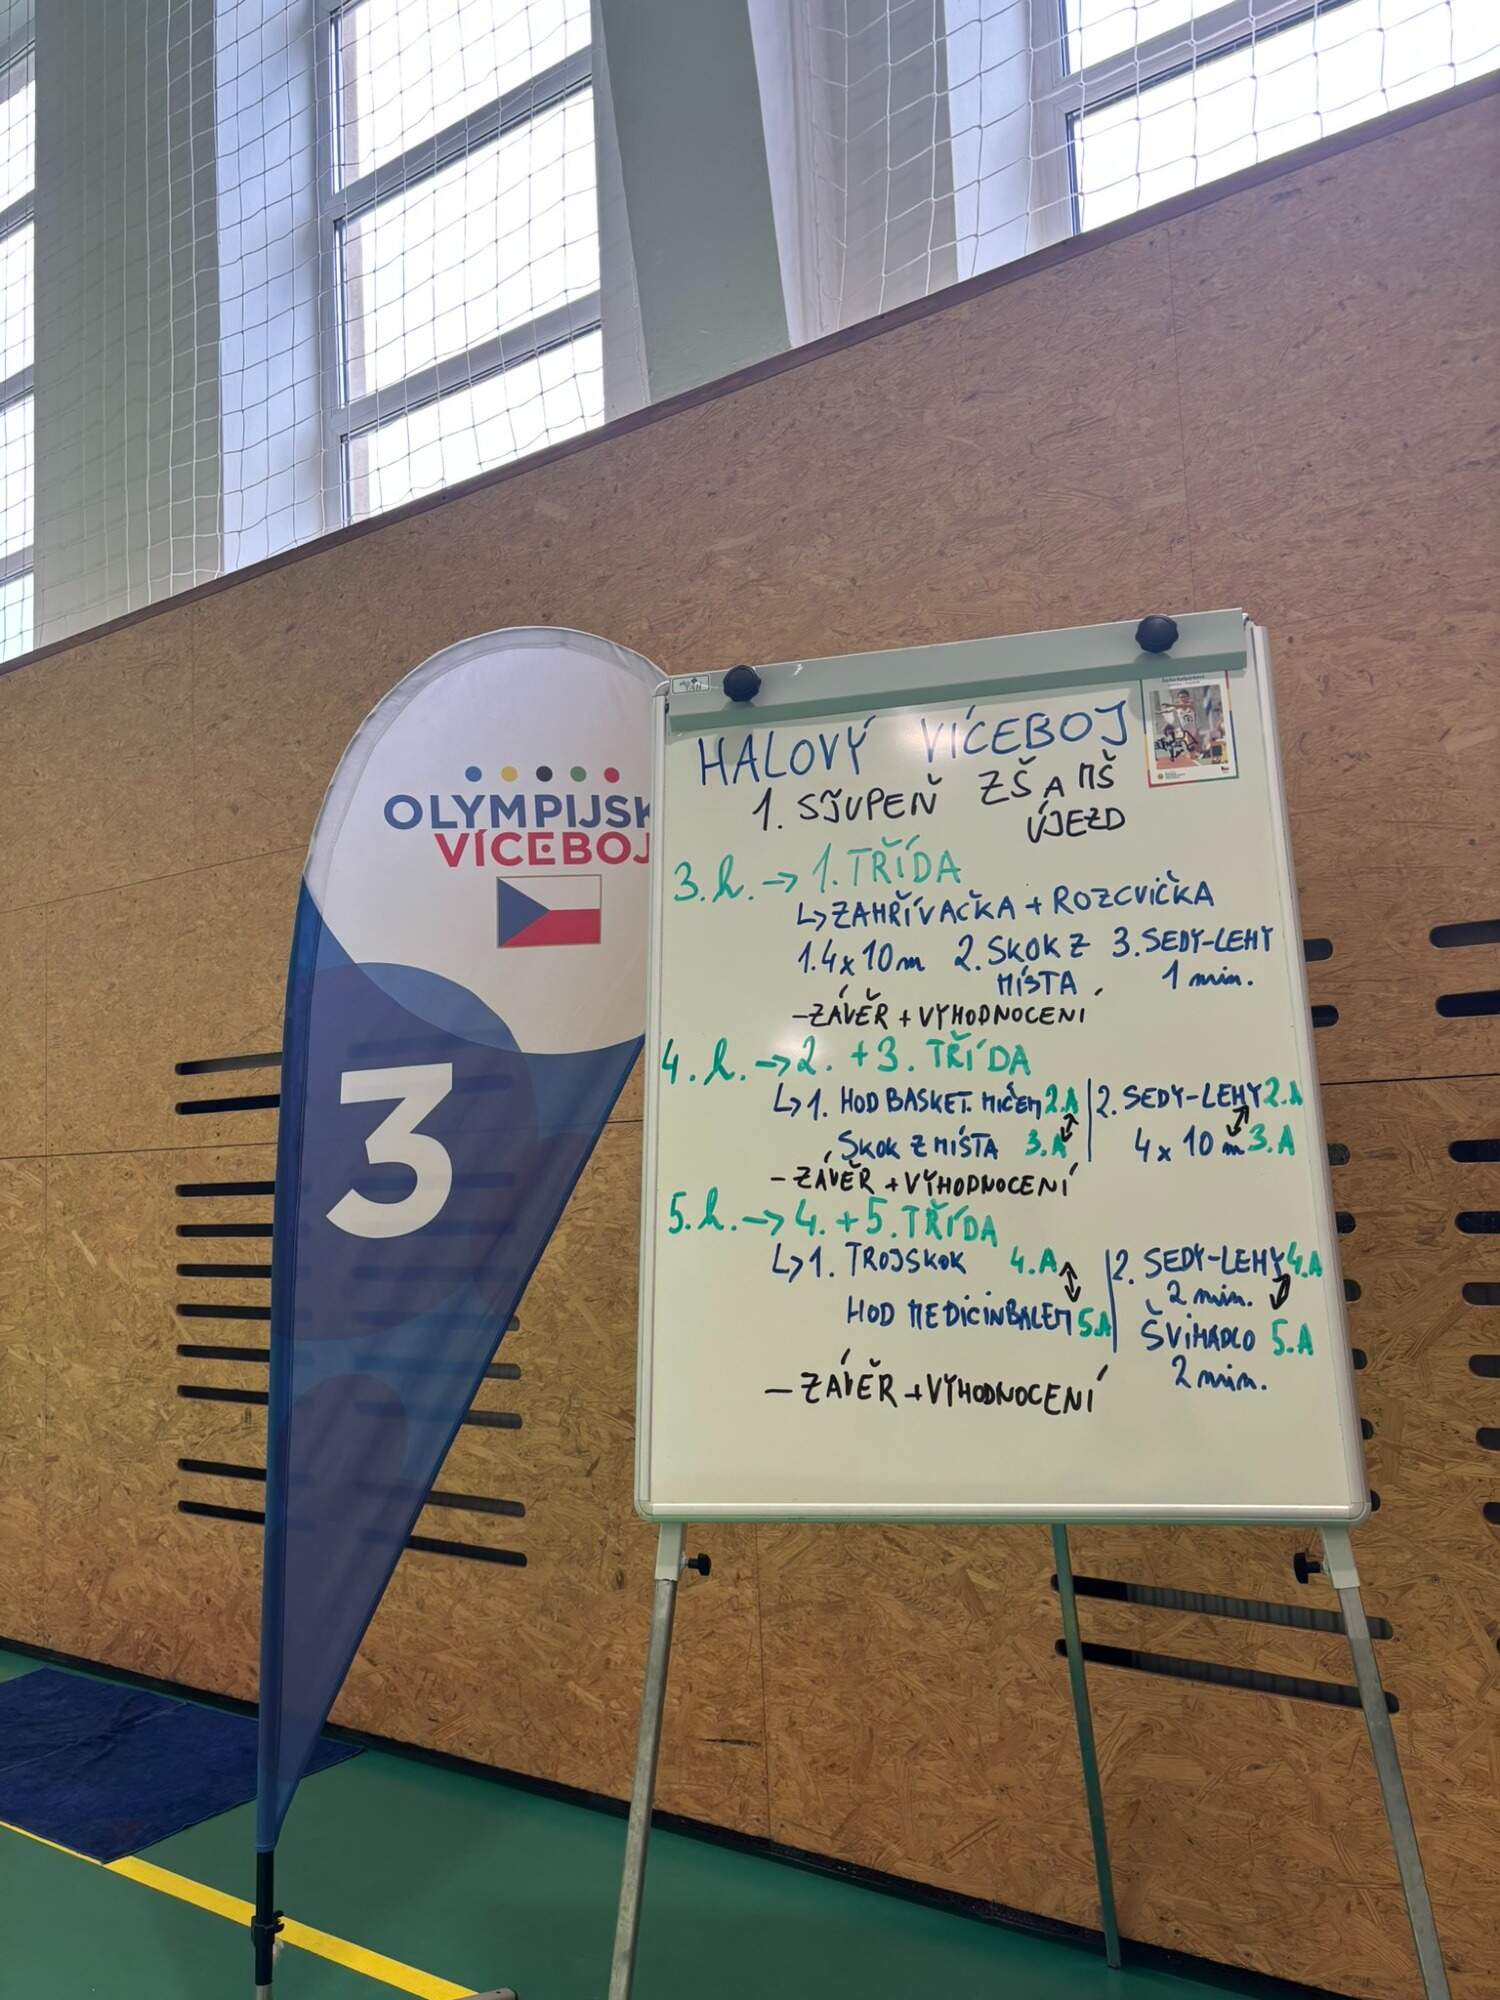 OLYMPIJSK
VÍCEBOJ
3
HALOVÝ VÍCEBOJ
1. STUPEŇ ZŠ A MŠ
ÚJEZD
3. h. → 1. TŘÍDA
↳ ZAHŘÍVAČKA + ROZCVIČKA
1. 4 x 10 m 2. SKOK Z 3. SEDY-LEHY
MÍSTA 1 min.
- ZÁVĚR + VYHODNOCENÍ
4. h. → 2. + 3. TŘÍDA
↳ 1. HOD BASKET. MÍČEM 2.A | 2. SEDY-LEHY 2.A
SKOK Z MÍSTA 3.A 4 x 10 m 3.A
- ZÁVĚR + VYHODNOCENÍ
5. h. → 4. + 5. TŘÍDA
↳ 1. TROJSKOK 4.A | 2. SEDY-LEHY 4.A
2 min.
HOD MEDICINBALEM 5.A ŠVIHADLO 5.A
2 min.
- ZÁVĚR + VYHODNOCENÍ